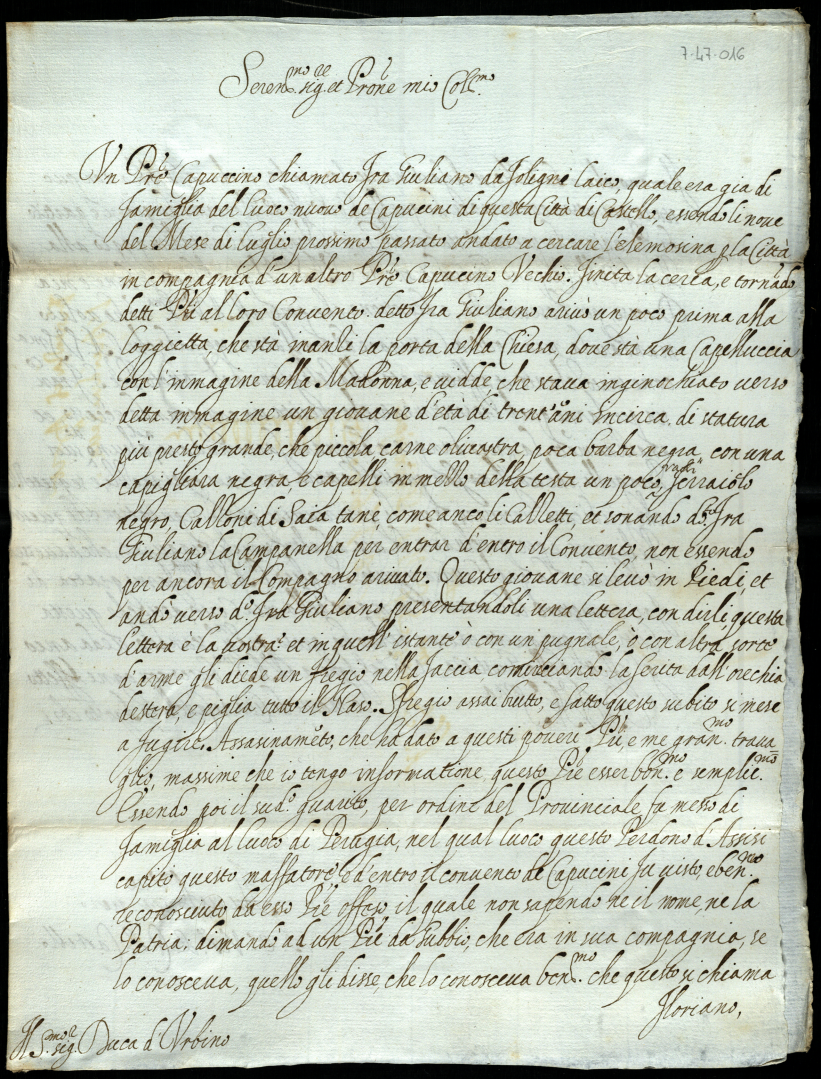 7·47·016
Seren.mo sig.re et Pron'e mio Col.mo
Vn Pre Capuccino chiamato fra Giuliano da foligni laico, quale era gia di
famiglia del luoco nuouo de Capucini di questa Città di Castello, essendo li noue
del Mese di luglio prossimo passato andato a cercare l'elemosina p la Città
in compagnia d'un altro Pre Capucino Vechio. finita la cerca, e tornado
detti PPri al loro Conuento detto fra Giuliano ariuò un poco prima alla
loggietta, che stà inanti la porta della Chiesa, doue stà una Capelluccia
con l'immagine della Madonna, e uidde, che staua inginochiato uerso
detta immagine un giouane d'età di trent'ani incirca di statura
piu presto grande, che piccola carne oliuastra, poca barba negra, con una
capigliara negra e capelli in mezzo della testa un poco radi, ferraiolo
negro, Calzoni di Saia tanè come anco li Calzetti, et sonando do. fra
Giuliano la Campanella per entrar d'entro il Conuento, non essendo
per ancora il Compagno ariuato. Questo giouane si leuò in Piedi, et
andò uerso do. fra Giuliano presentandoli una lettera, con dirli questa
lettera è la uostra et in quell'istante ò con un pugnale, o con altra sorte
d'arme gli diede un fregio nella faccia cominciando la ferita dall'orechia
destera, e piglia tutto il Naso. Sfregio assai butto, e fatto questo subito si mese
a fugire. Assasinameto, che ha dato a questi poueri PPri, e me gran.mo traua=
glio, massime che io tengo informatione, questo Pre esser bon.mo e semplic.mo
Essendo poi il sudo. guarito, per ordine del Prouinciale, fu messo di
famiglia al luoco di Perugia, nel qual luoco questo Perdono d'Assisi
capitò questo malfatore, e d'entro il conuento de Capucini fu uisto, e ben.mo
reconosciuto da esso Pre offeso, il quale non sapendo ne il nome, ne la
Patria; dimandò ad un Pre da Gubbio, che era in sua compagnia, se
lo conosceua, quello gli disse, che lo conosceua ben.mo che questo si chiama
floriano,
Al S.mo sig.r Duca d'Vrbino